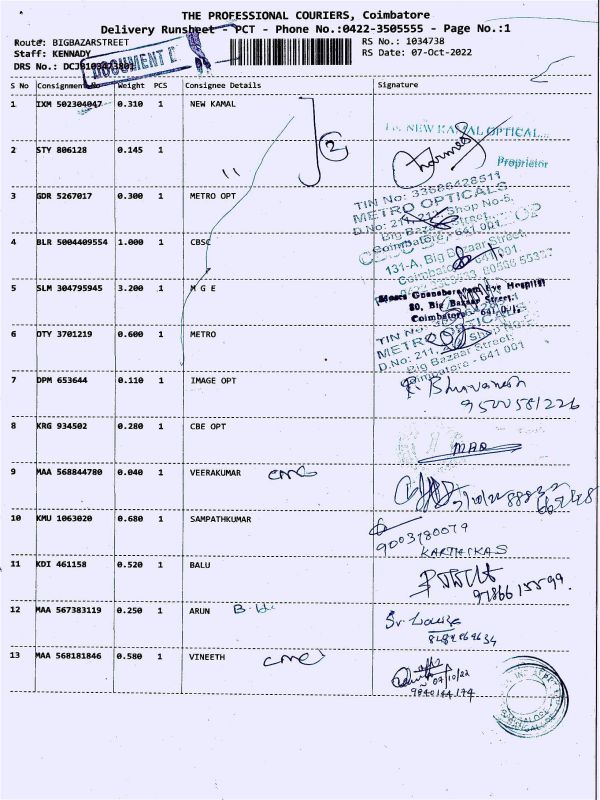 THE PROFESSIONAL COURIERS, Coimbatore
Delivery Runsheet - PCT - Phone No.:0422-3505555 - Page No.:1
Route: BIGBAZARSTREET
RS No.: 1034738
Staff: KENNADY
RS Date: 07-Oct-2022
DRS No.:
DOCUMENT
S No Consignment No Weight PCS Consignee Details Signature
1 IXM 502304047 0.310 1 NEW KAMAL
2
NEW KAMAL OPTICAL
Proprietor
2 STY 806128 0.145 1 "
TIN No: 33586428511
METRO OPTICALS
3 GDR 5267017 0.300 1 METRO OPT
D.No: 211, Shop No-5,
Big Bazaar Street,
Coimbatore - 641 001.
4 BLR 5004409554 1.000 1 CBSC
131-A, Big Bazaar Street,
Coimbatore - 641 001.
5 SLM 304795945 3.200 1 M G E
Eye Hospital
80, Big Bazaar Street,
Coimbatore - 641 001.
6 DTY 3701219 0.600 1 METRO
TIN No
METRO OPTICALS
D.No: 211, Shop No-5,
Big Bazaar Street,
Coimbatore - 641 001
7 DPM 653644 0.110 1 IMAGE OPT
9500581226
8 KRG 934502 0.280 1 CBE OPT
9 MAA 568844780 0.040 1 VEERAKUMAR
10 KMU 1063020 0.680 1 SAMPATHKUMAR
9003780079
KARTHIKAS
11 KDI 461158 0.520 1 BALU
12 MAA 567383119 0.250 1 ARUN
13 MAA 568181846 0.580 1 VINEETH
07/10/22